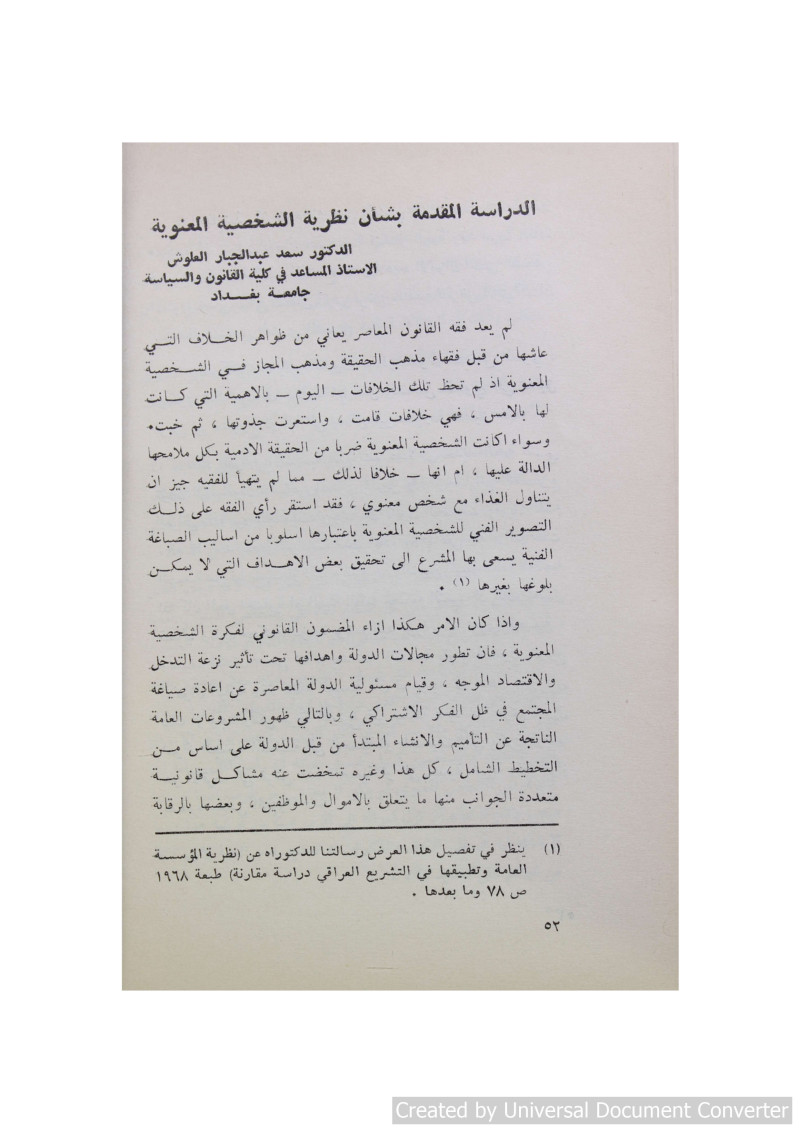 الدراسة المقدمة بشأن نظرية الشخصية المعنوية
الدكتور سعد عبدالجبار العلوش
الاستاذ المساعد في كلية القانون والسياسة
جامعة بغداد
لم يعد فقه القانون المعاصر يعاني من ظواهر الخلاف التي
عاشها من قبل فقهاء مذهب الحقيقة ومذهب المجاز في الشخصية
المعنوية اذ لم تحظ تلك الخلافات – اليوم – بالاهمية التي كانت
لها بالامس ، فهي خلافات قامت ، واستعرت جذوتها ، ثم خبت٠
وسواء اكانت الشخصية المعنوية ضربا من الحقيقة الادمية بكل ملامحها
الدالة عليها ، ام انها – خلافا لذلك – مما لم يتهيأ للفقيه جيز ان
يتناول الغذاء مع شخص معنوي ، فقد استقر رأي الفقه على ذلك
التصوير الفني للشخصية المعنوية باعتبارها اسلوبا من اساليب الصياغة
الفنية يسعى بها المشرع الى تحقيق بعض الاهداف التي لا يمكن
بلوغها بغيرها (١) ٠
واذا كان الامر هكذا ازاء المضمون القانوني لفكرة الشخصية
المعنوية ، فان تطور مجالات الدولة واهدافها تحت تأثير نزعة التدخل
والاقتصاد الموجه ، وقيام مسئولية الدولة المعاصرة عن اعادة صياغة
المجتمع في ظل الفكر الاشتراكي ، وبالتالي ظهور المشروعات العامة
الناتجة عن التأميم والانشاء المبتدأ من قبل الدولة على اساس من
التخطيط الشامل ، كل هذا وغيره تمخضت عنه مشاكل قانونية
متعددة الجوانب منها ما يتعلق بالاموال والموظفين ، وبعضها بالرقابة
(١) ينظر في تفصيل هذا العرض رسالتنا للدكتوراه عن (نظرية المؤسسة
العامة وتطبيقها في التشريع العراقي دراسة مقارنة) طبعة ١٩٦٨
ص ٧٨ وما بعدها ٠
٥٢
Created by Universal Document Converter